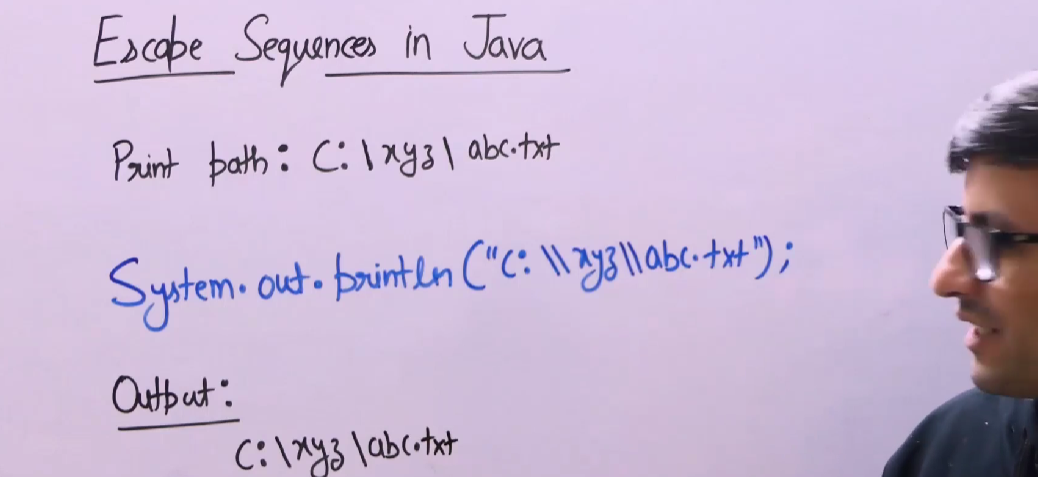 Escape Sequences in Java
Print path: C:\xyz\abc.txt
System.out.println("C:\\xyz\\abc.txt");
Output:
C:\xyz\abc.txt